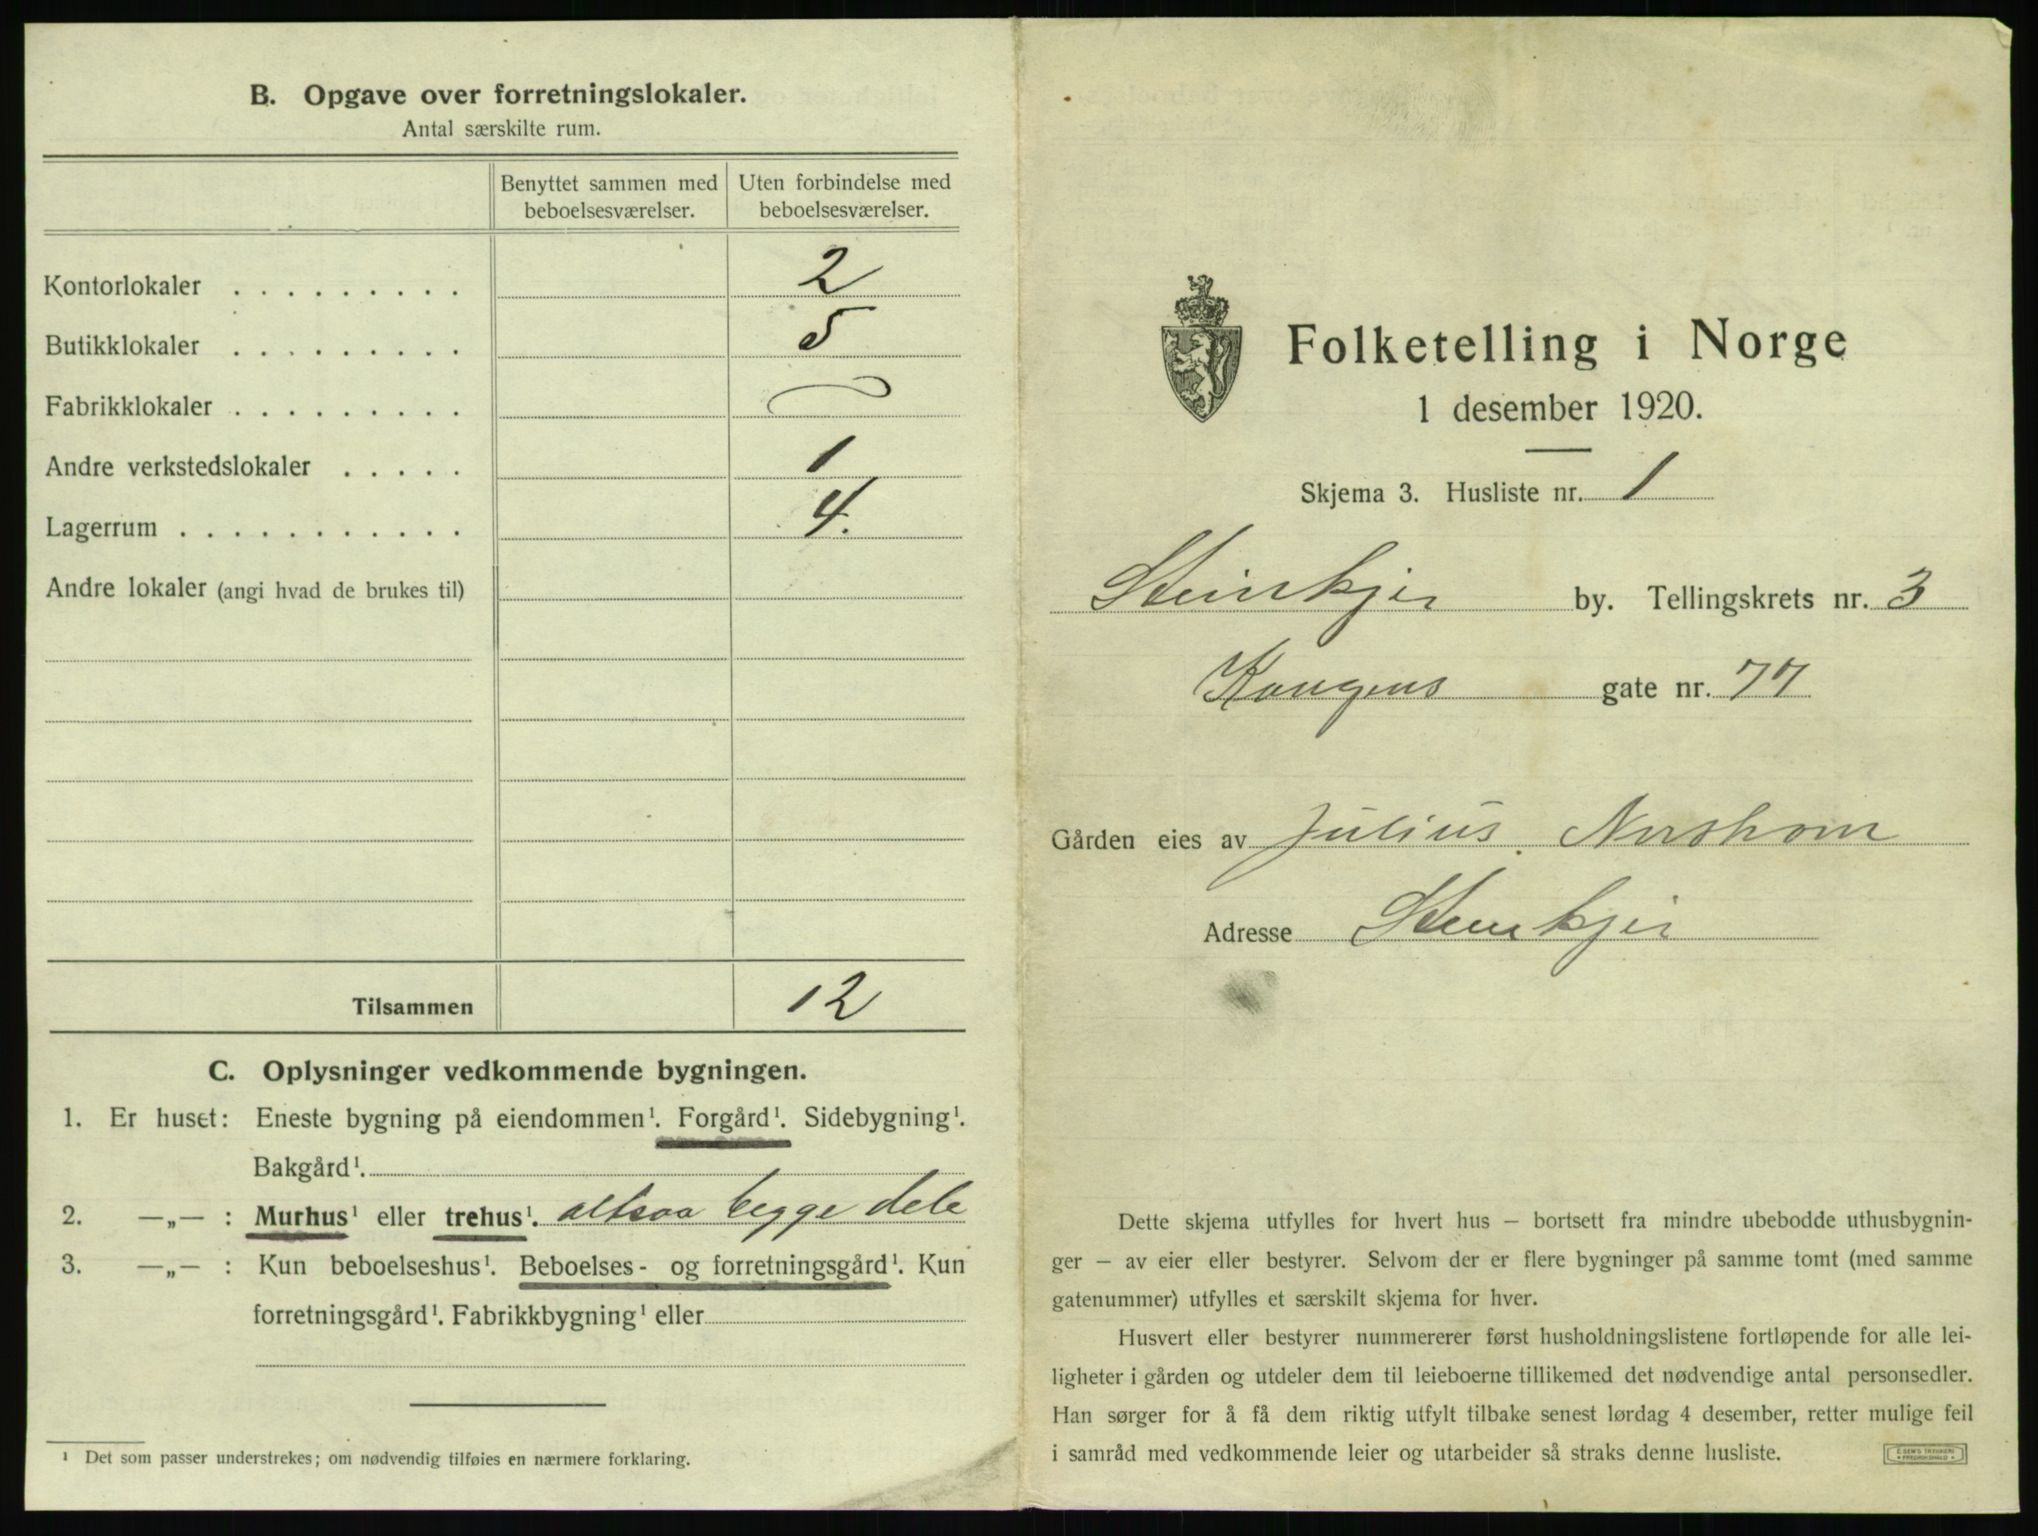 B. Opgave over forretningslokaler.
Antal særskilte rum.
Benyttet sammen med beboelsesværelser.
Uten forbindelse med beboelsesværelser.
Kontorlokaler . . . . . . . . . 2
Butikklokaler . . . . . . . . . 5
Fabrikklokaler . . . . . . . . .
Andre verkstedslokaler . . . . . 1
Lagerrum . . . . . . . . . . . 4.
Andre lokaler (angi hvad de brukes til)
Tilsammen 12
C. Oplysninger vedkommende bygningen.
1. Er huset: Eneste bygning på eiendommen¹. Forgård¹. Sidebygning¹.
Bakgård¹.
2. —„— : Murhus¹ eller trehus¹. altsaa begge dele
3. —„— : Kun beboelseshus¹. Beboelses- og forretningsgård¹. Kun
forretningsgård¹. Fabrikkbygning¹ eller
¹ Det som passer understrekes; om nødvendig tilføies en nærmere forklaring.
Folketelling i Norge
1 desember 1920.
Skjema 3. Husliste nr. 1
Steinkjer by. Tellingskrets nr. 3
Kongens gate nr. 77
Gården eies av Julius
Adresse Steinkjer
Dette skjema utfylles for hvert hus – bortsett fra mindre ubebodde uthusbygnin-
ger – av eier eller bestyrer. Selvom der er flere bygninger på samme tomt (med samme
gatenummer) utfylles et særskilt skjema for hver.
Husvert eller bestyrer nummererer først husholdningslistene fortløpende for alle lei-
ligheter i gården og utdeler dem til leieboerne tillikemed det nødvendige antal personsedler.
Han sørger for å få dem riktig utfylt tilbake senest lørdag 4 desember, retter mulige feil
i samråd med vedkommende leier og utarbeider så straks denne husliste.